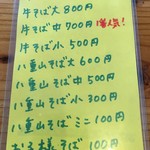 牛そば大 800円
牛そば中 700円 人気!
牛そば小 500円
八重山そば大 600円
八重山そば中 500円
八重山そば小 300円
八重山そばミニ 100円
お子様そば 100円